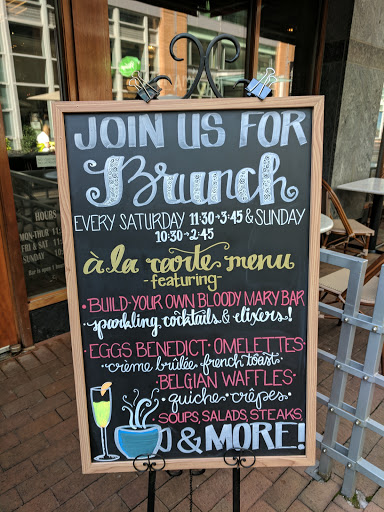 JOIN US FOR
Brunch
EVERY SATURDAY 11:30→3:45 & SUNDAY
10:30→2:45
à la carte menu
-featuring-
·BUILD-YOUR OWN BLOODY MARY BAR
·sparkling cocktails & elixers!
·EGGS BENEDICT·OMELETTES·
crème brûlée french toast·
·BELGIAN WAFFLES·
·quiche·crêpes·
SOUPS, SALADS, STEAKS
& MORE!
HOURS
MON-THUR 11:
FRI & SAT 11:
SUNDAY 10: